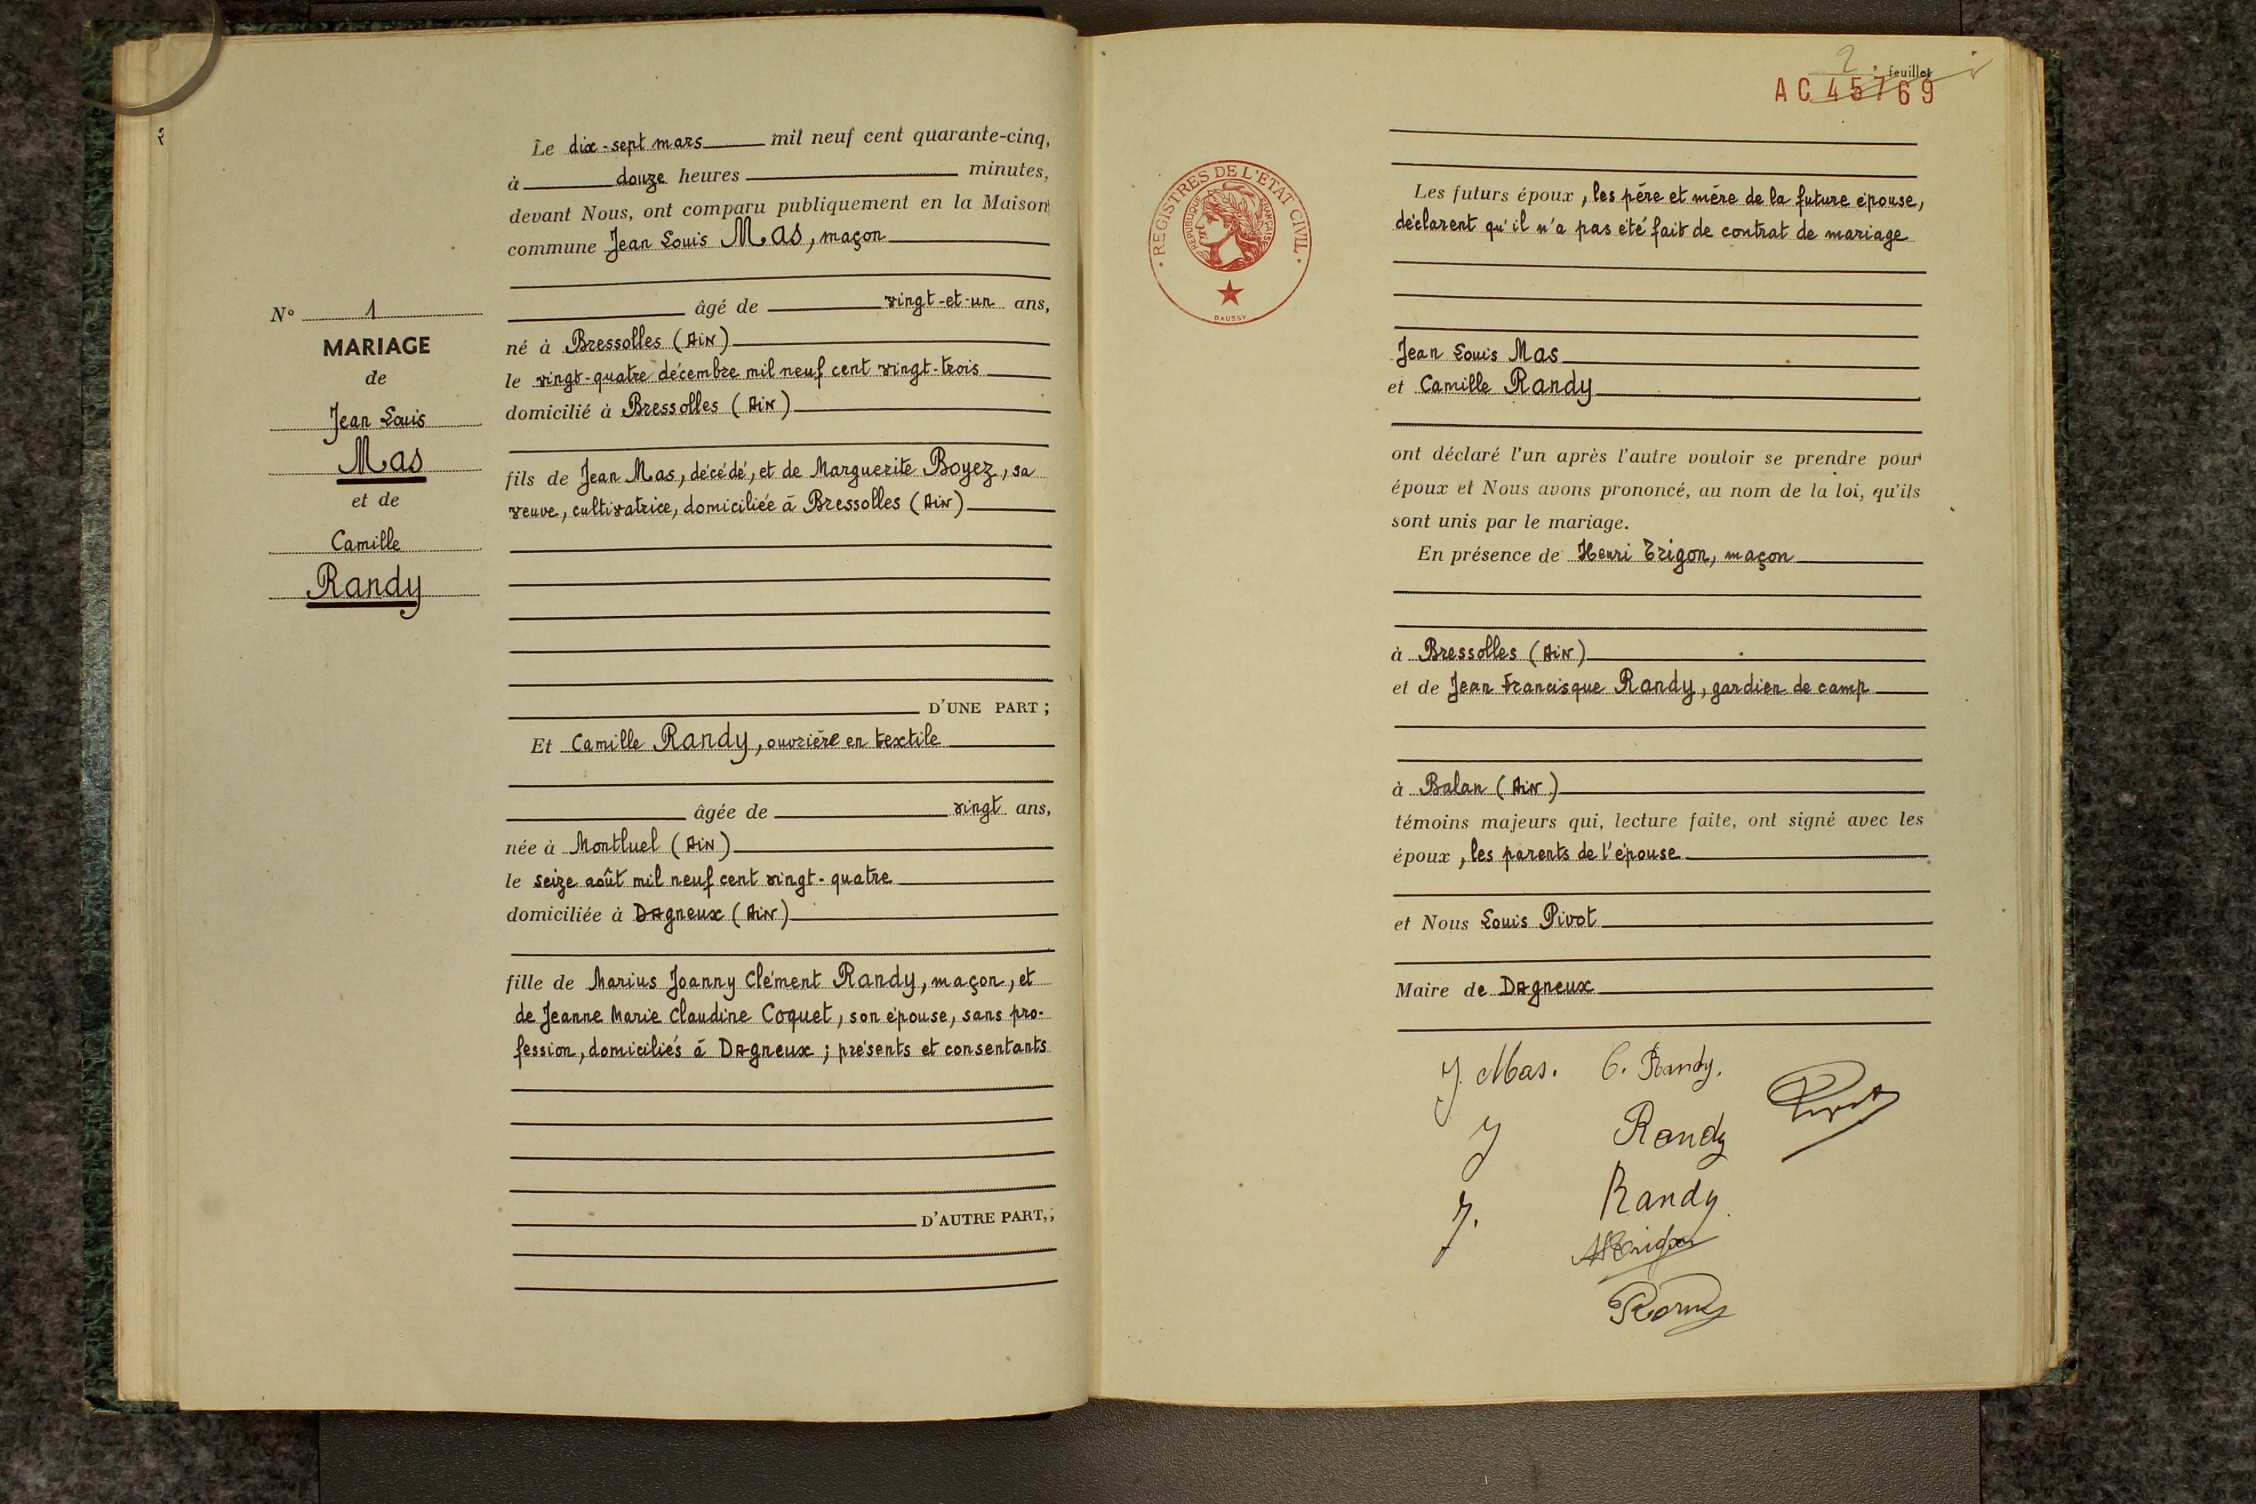 Le dix-sept mars mil neuf cent quarante-cinq,
à douze heures minutes,
devant Nous, ont comparu publiquement en la Maison
commune Jean Louis Mas, maçon
âgé de vingt-et-un ans,
né à Bressolles (Ain)
le vingt-quatre décembre mil neuf cent vingt-trois
domicilié à Bressolles (Ain)
fils de Jean Mas, décédé, et de Marguerite Boyez, sa
veuve, cultivatrice, domiciliée à Bressolles (Ain)
D'UNE PART ;
Et Camille Randy, ouvrière en textile
âgée de vingt ans,
née à Montluel (Ain)
le seize août mil neuf cent vingt-quatre
domiciliée à Dagneux (Ain)
fille de Marius Joanny Clément Randy, maçon, et
de Jeanne Marie Claudine Coquet, son épouse, sans pro-
fession, domiciliés à Dagneux ; présents et consentants
D'AUTRE PART, ;
N° 1
MARIAGE
de
Jean Louis
Mas
et de
Camille
Randy
2 e feuillet
AC 45769
REGISTRES DE L'ETAT CIVIL
REPUBLIQUE FRANÇAISE
DAUSSY
Les futurs époux, les père et mère de la future épouse,
déclarent qu'il n'a pas été fait de contrat de mariage
Jean Louis Mas
et Camille Randy
ont déclaré l'un après l'autre vouloir se prendre pour
époux et Nous avons prononcé, au nom de la loi, qu'ils
sont unis par le mariage.
En présence de Henri Trigon, maçon
à Bressolles (Ain)
et de Jean Francisque Randy, gardien de camp
à Balan (Ain)
témoins majeurs qui, lecture faite, ont signé avec les
époux, les parents de l'épouse
et Nous Louis Pivot
Maire de Dagneux
J. Mas. C. Randy.
Pivot
J Randy
J. Randy
HTrigon
Randy